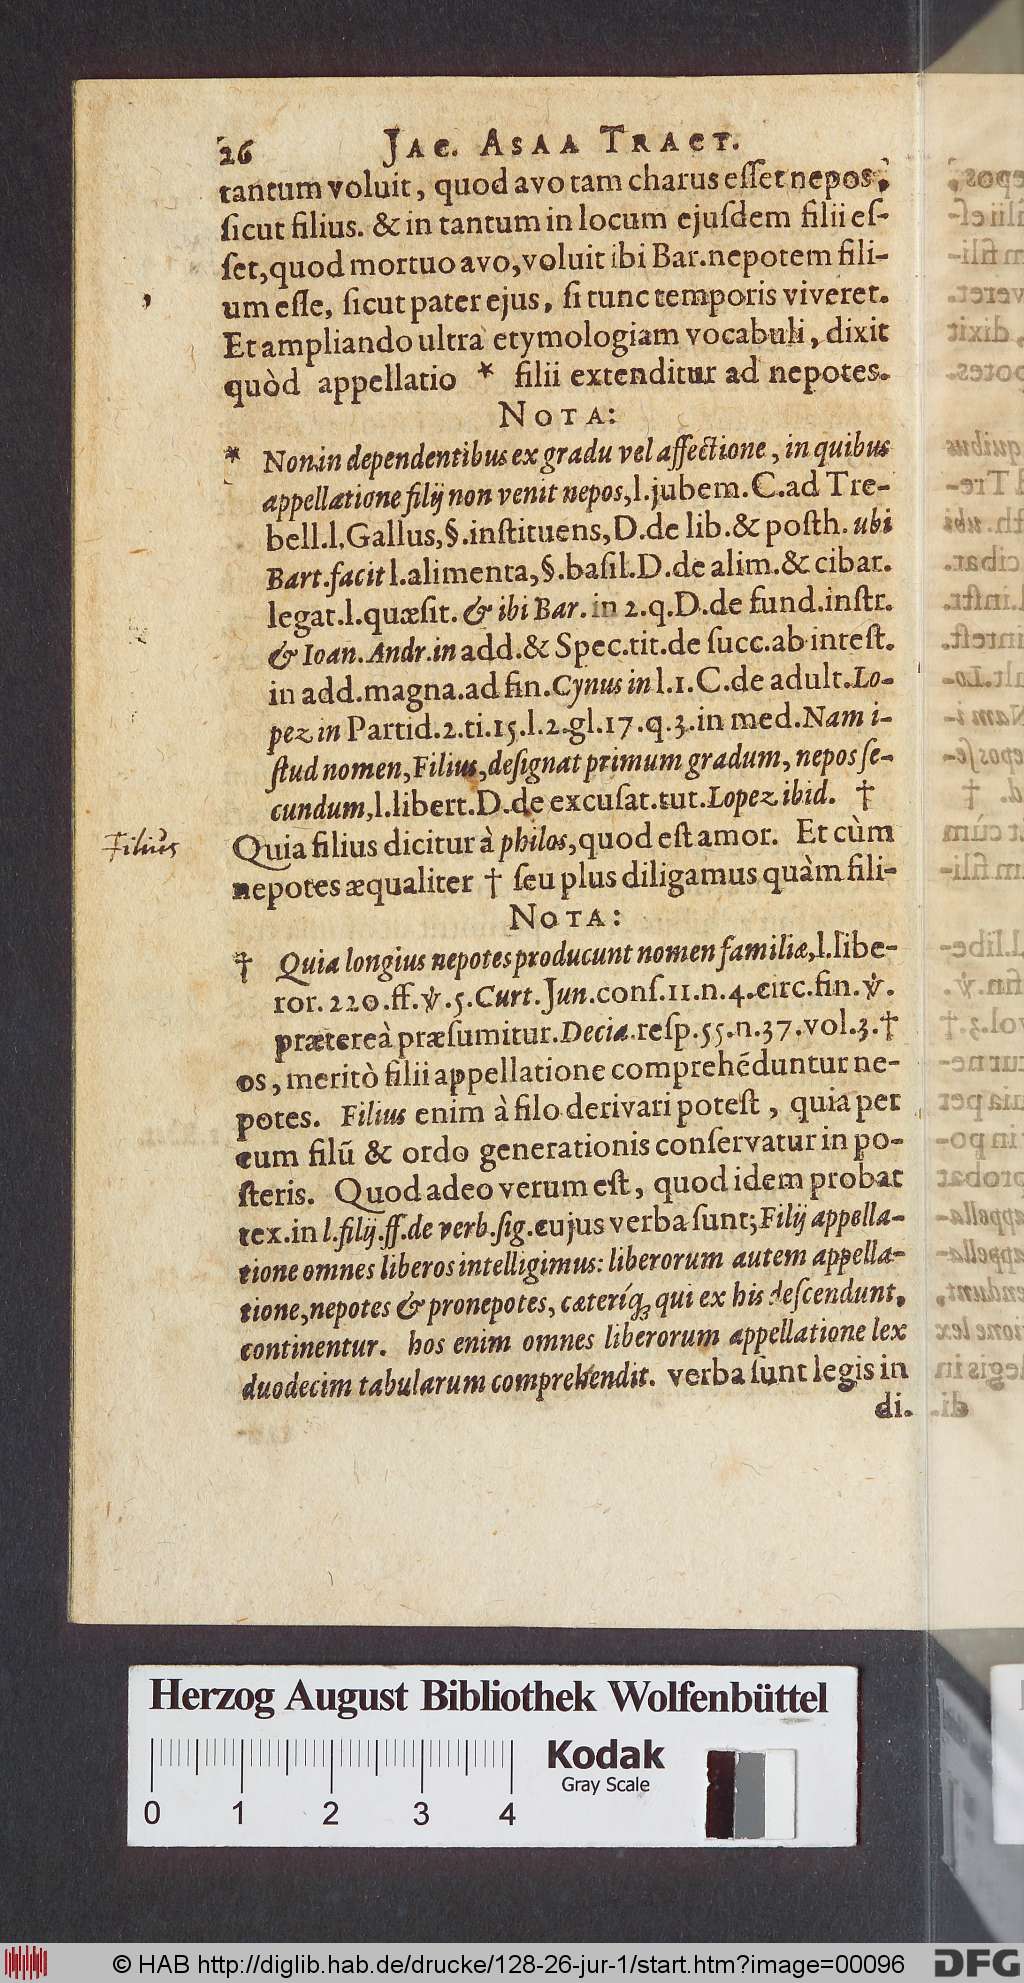 26 JAC. ASAA TRACT.
tantum voluit, quod avo tam charus eſſet nepos,
ſicut filius. & in tantum in locum ejuſdem filii eſ-
ſet, quod mortuo avo, voluit ibi Bar. nepotem fili-
um eſſe, ſicut pater ejus, ſi tunc temporis viveret.
Et ampliando ultra etymologiam vocabuli, dixit
quòd appellatio * filii extenditur ad nepotes.
NOTA:
* Non in dependentibus ex gradu vel affectione, in quibus
appellatione filij non venit nepos, l. jubem. C. ad Tre-
bell. l. Gallus, §. inſtituens, D. de lib. & poſth. ubi
Bart. facit l. alimenta, §. baſil. D. de alim. & cibar.
legat. l. quæſit. & ibi Bar. in 2. q. D. de fund. inſtr.
& Ioan. Andr. in add. & Spec. tit. de ſucc. ab inteſt.
in add. magna. ad fin. Cynus in l. 1. C. de adult. Lo-
pez in Partid. 2. ti. 15. l. 2. gl. 17. q. 3. in med. Nam i-
ſtud nomen, Filius, deſignat primum gradum, nepos ſe-
cundum, l. libert. D. de excuſat. tut. Lopez ibid. †
Filius
Quia filius dicitur à philos, quod eſt amor. Et cùm
nepotes æqualiter † ſeu plus diligamus quàm fili-
NOTA:
† Quia longius nepotes producunt nomen familiæ, l. libe-
ror. 220. ff. ℣. 5. Curt. Jun. conſ. 11. n. 4. circ. fin. ℣.
prætereà præſumitur. Decia. reſp. 55. n. 37. vol. 3. †
os, meritò filii appellatione comprehẽduntur ne-
potes. Filius enim à filo derivari poteſt, quia per
eum filũ & ordo generationis conſervatur in po-
ſteris. Quod adeo verum eſt, quod idem probat
tex. in l. filij. ff. de verb. ſig. cujus verba ſunt; Filij appella-
tione omnes liberos intelligimus: liberorum autem appella-
tione, nepotes & pronepotes, cæteríq; qui ex his deſcendunt,
continentur. hos enim omnes liberorum appellatione lex
duodecim tabularum comprehendit. verba ſunt legis in
di.
Herzog August Bibliothek Wolfenbüttel
Kodak
Gray Scale
0 1 2 3 4
© HAB http://diglib.hab.de/drucke/128-26-jur-1/start.htm?image=00096
DFG